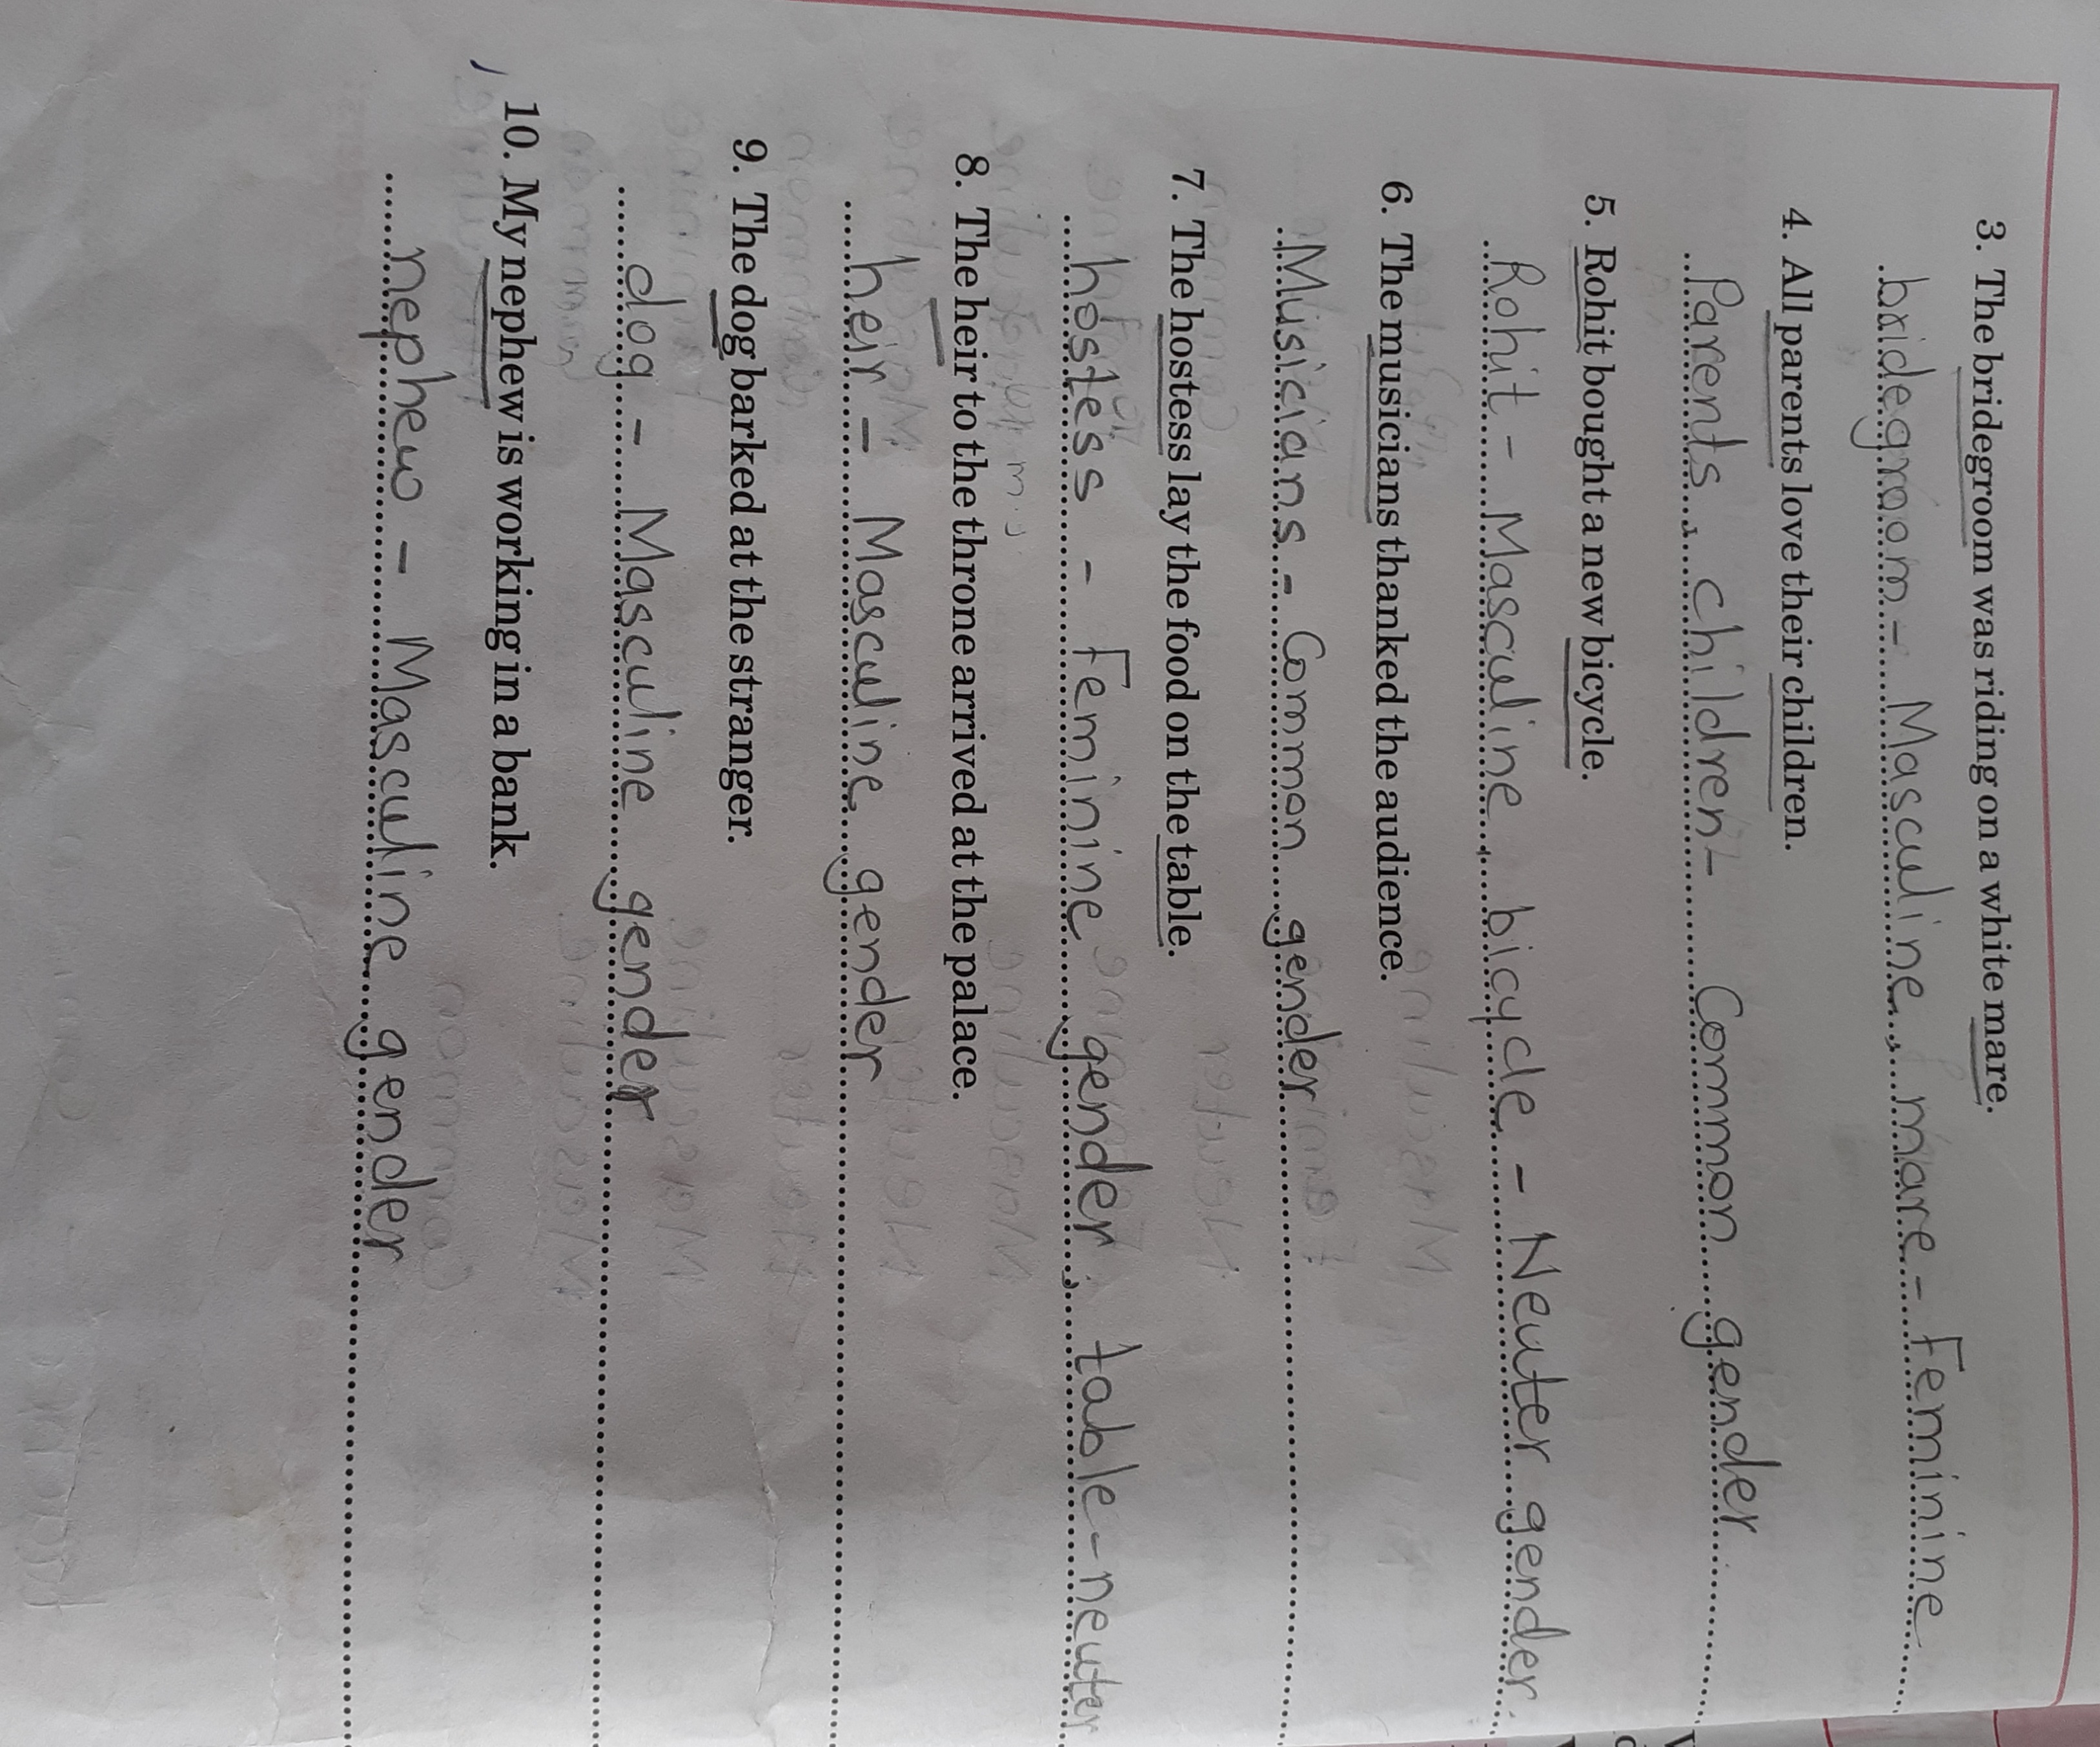 3. The bridegroom was riding on a white mare.
bridegroom - Masculine, mare - Feminine
4. All parents love their children.
Parents, children - Common gender
5. Rohit bought a new bicycle.
Rohit - Masculine, bicycle - Neuter gender
6. The musicians thanked the audience.
Musicians - Common gender
7. The hostess lay the food on the table.
hostess - Feminine gender, table - neuter
8. The heir to the throne arrived at the palace.
heir - Masculine gender
9. The dog barked at the stranger.
dog - Masculine gender
10. My nephew is working in a bank.
nephew - Masculine gender